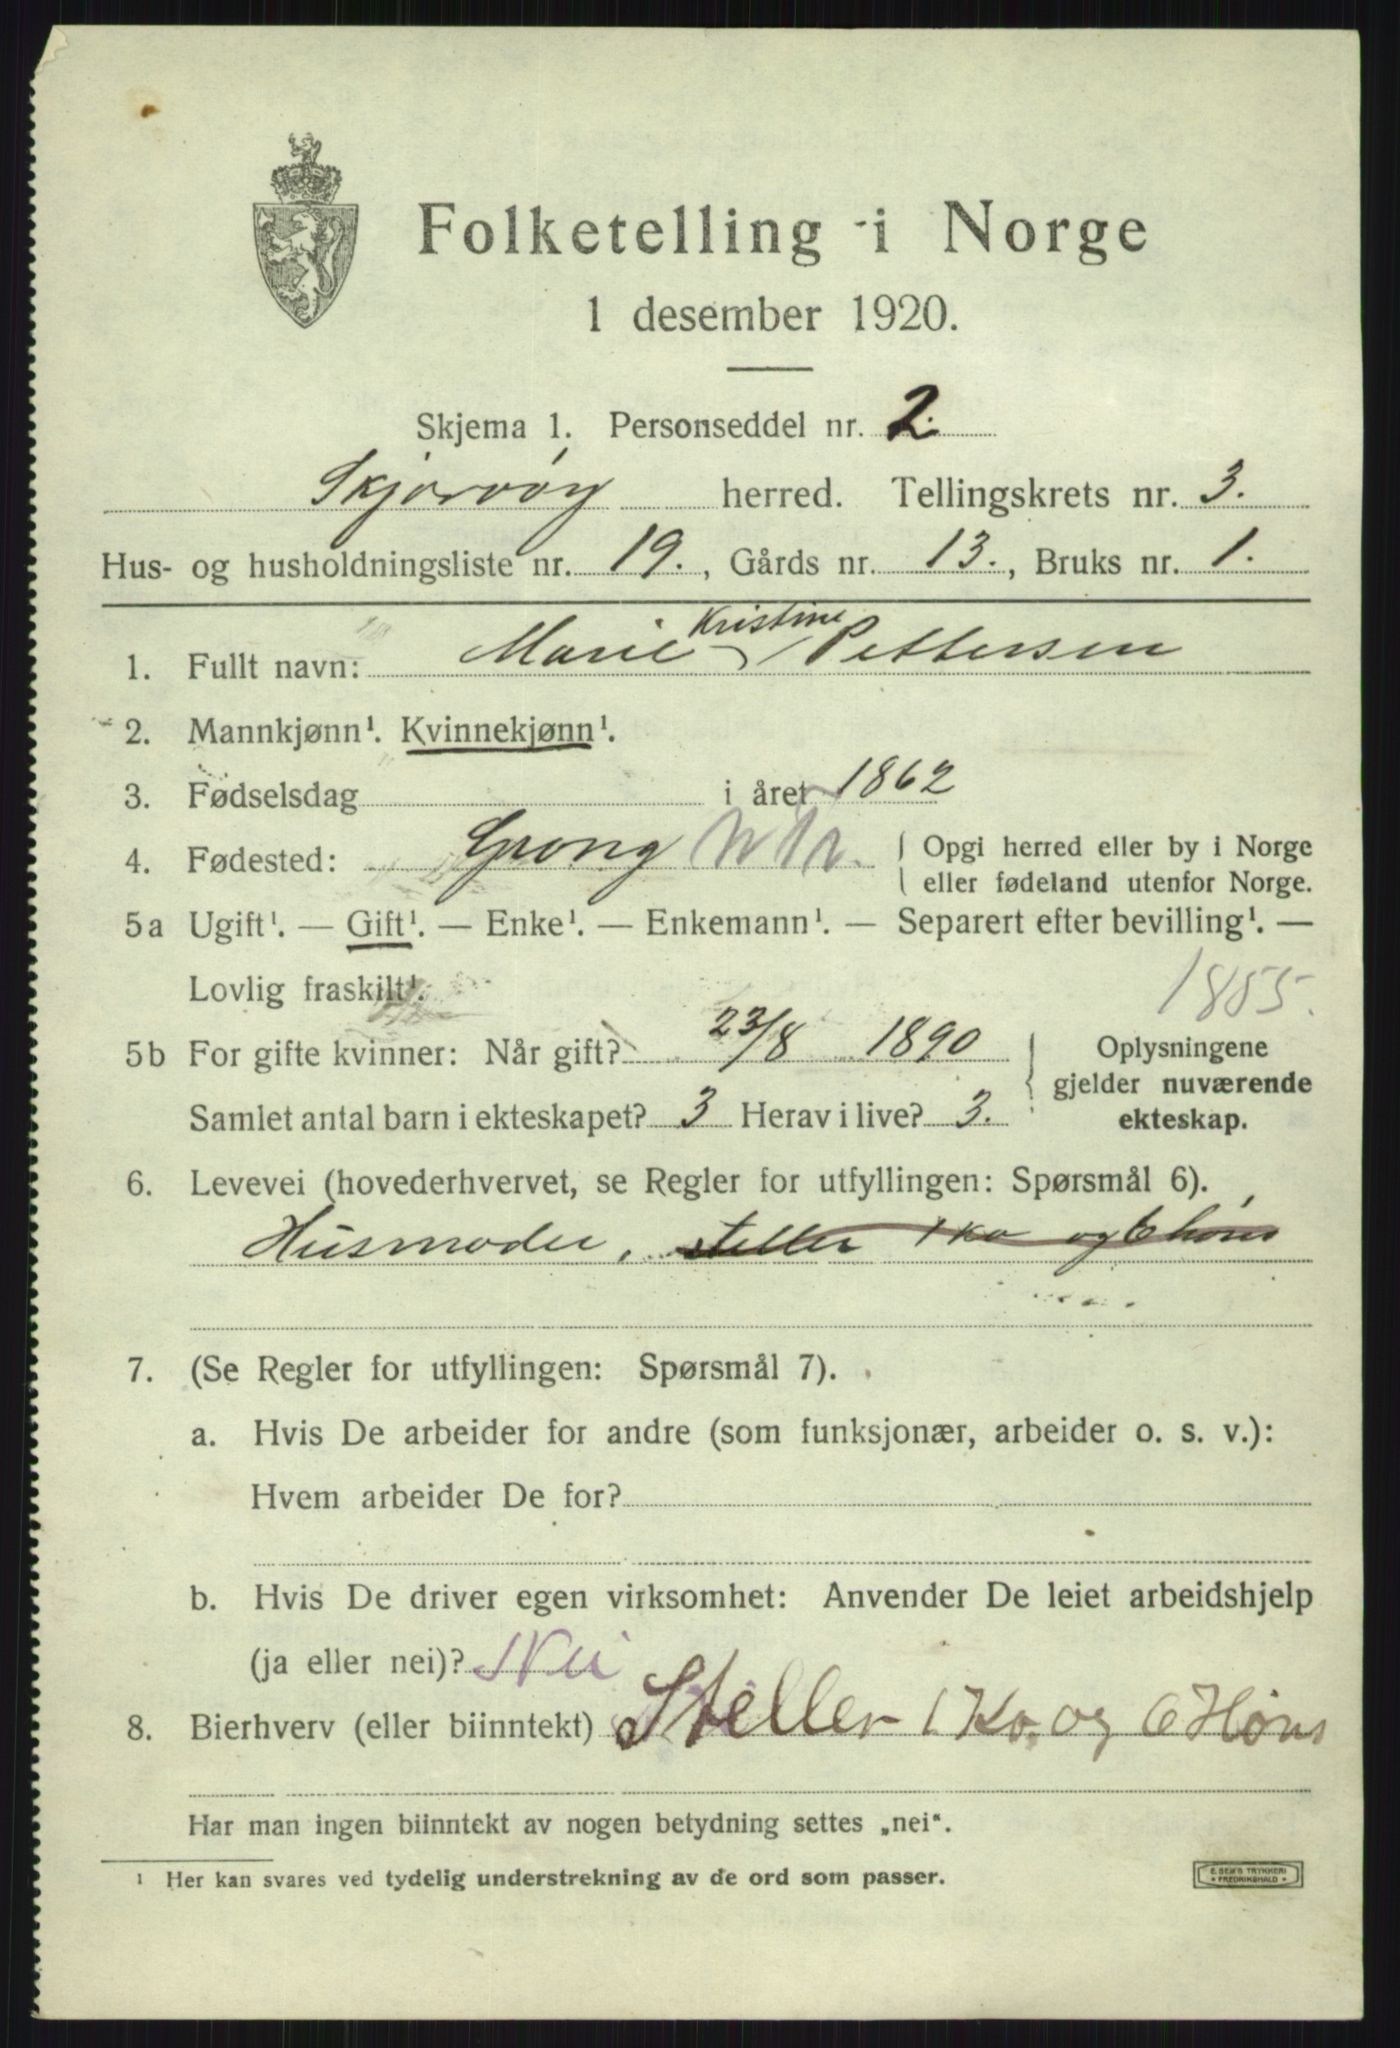 Folketelling i Norge
1 desember 1920.
Skjema 1. Personseddel nr. 2.
Skjervøy herred. Tellingskrets nr. 3.
Hus- og husholdningsliste nr. 19., Gårds nr. 13., Bruks nr. 1.
Kristine
1. Fullt navn: Marie Pettersen
2. Mannkjønn¹. Kvinnekjønn¹.
3. Fødselsdag i året 1862
4. Fødested: Grong { Opgi herred eller by i Norge
eller fødeland utenfor Norge.
5a Ugift¹. — Gift¹. — Enke¹. — Enkemann¹. — Separert efter bevilling¹. —
Lovlig fraskilt¹. 1885.
5b For gifte kvinner: Når gift? 23/8 1890 { Oplysningene
gjelder nuværende
ekteskap.
Samlet antal barn i ekteskapet? 3 Herav i live? 3.
6. Levevei (hovederhvervet, se Regler for utfyllingen: Spørsmål 6).
Husmoder, steller 1 ko og 6 høns
7. (Se Regler for utfyllingen: Spørsmål 7).
a. Hvis De arbeider for andre (som funksjonær, arbeider o. s. v.):
Hvem arbeider De for?
b. Hvis De driver egen virksomhet: Anvender De leiet arbeidshjelp
(ja eller nei)? Nei
8. Bierhverv (eller biinntekt) Steller 1 Ko. og 6 Høns
Har man ingen biinntekt av nogen betydning settes „nei“.
¹ Her kan svares ved tydelig understrekning av de ord som passer.
E. SEM'S TRYKKERI
* FREDRIKSHALD *